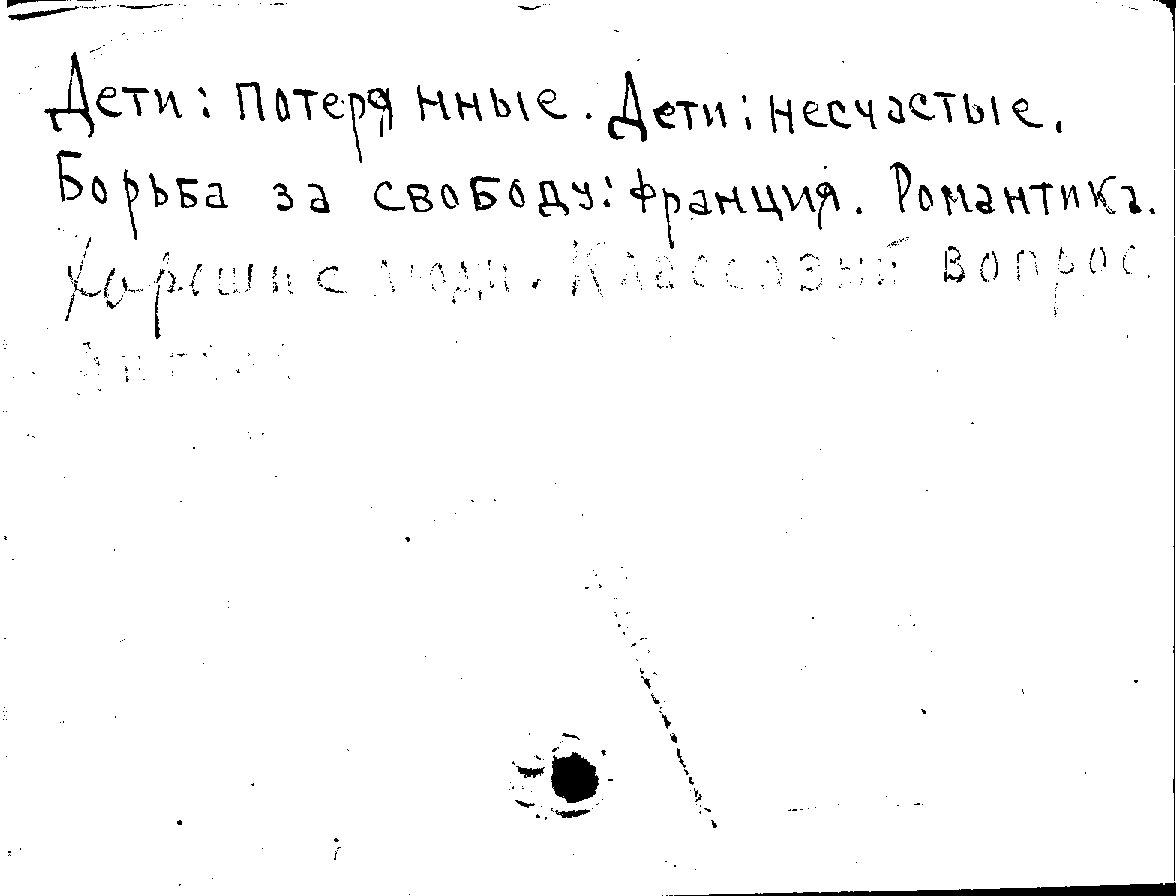 Дети: потерянные. Дети: несчастые.
Борьба за свободу: франция. Романтика.
Хорошие люди. Классовый вопрос.